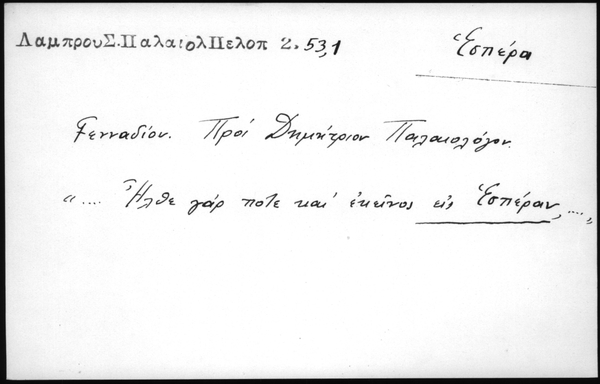 ΛαμπρουΣ.ΠαλαιολΠελοπ 2.53,1
Ἑσπέρα
Γενναδίου. Πρὸς Δημήτριον Παλαιολόγον.
".... Ἦλθε γάρ ποτε καὶ ἐκεῖνος εἰς Ἑσπέραν,....."